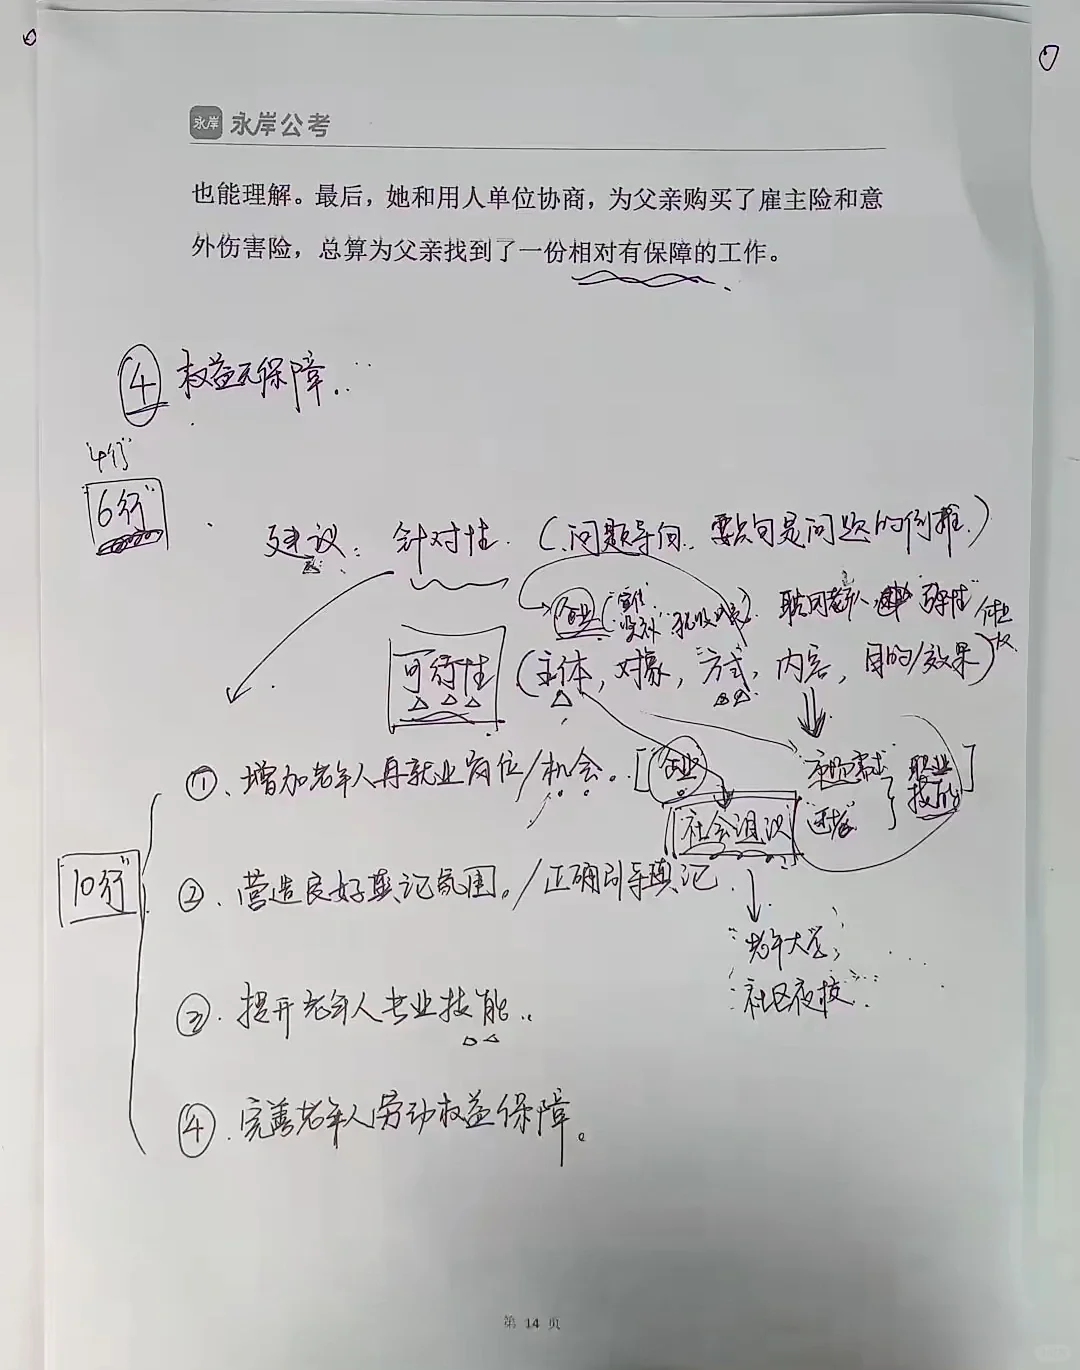 永岸 永岸公考
也能理解。最后，她和用人单位协商，为父亲购买了雇主险和意
外伤害险，总算为父亲找到了一份相对有保障的工作。
④ 权益无保障
"4行"
"6行"
建议：针对性.（问题导向. 要点句是问题的倒推.）
企业
可行性（主体，对象，方式，内容，目的/效果）
①、增加老年人再就业岗位/机会。[企业 市场需求 职业技能]
社会组织
②、营造良好舆论氛围。/正确引导舆论.
10行
"老年大学"
"社区夜校"
③.提升老年人专业技能..
④.完善老年人劳动权益保障。
第 14 页